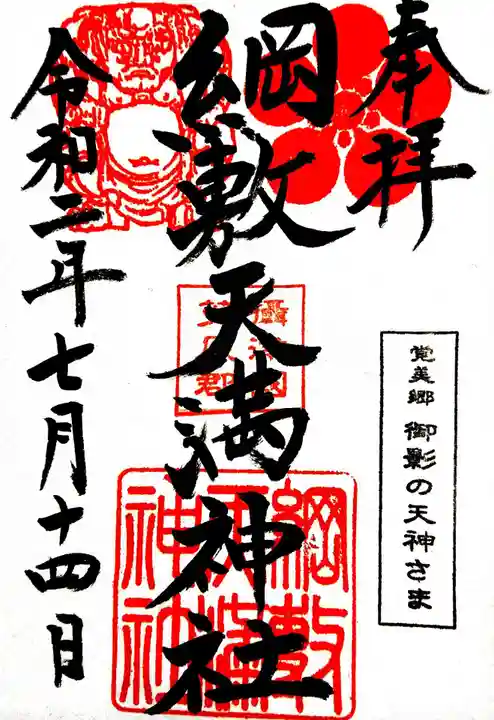 奉拝
覚美郷 御影の天神さま
綱敷天満神社
綱敷
天満
神社
令和二年七月十四日